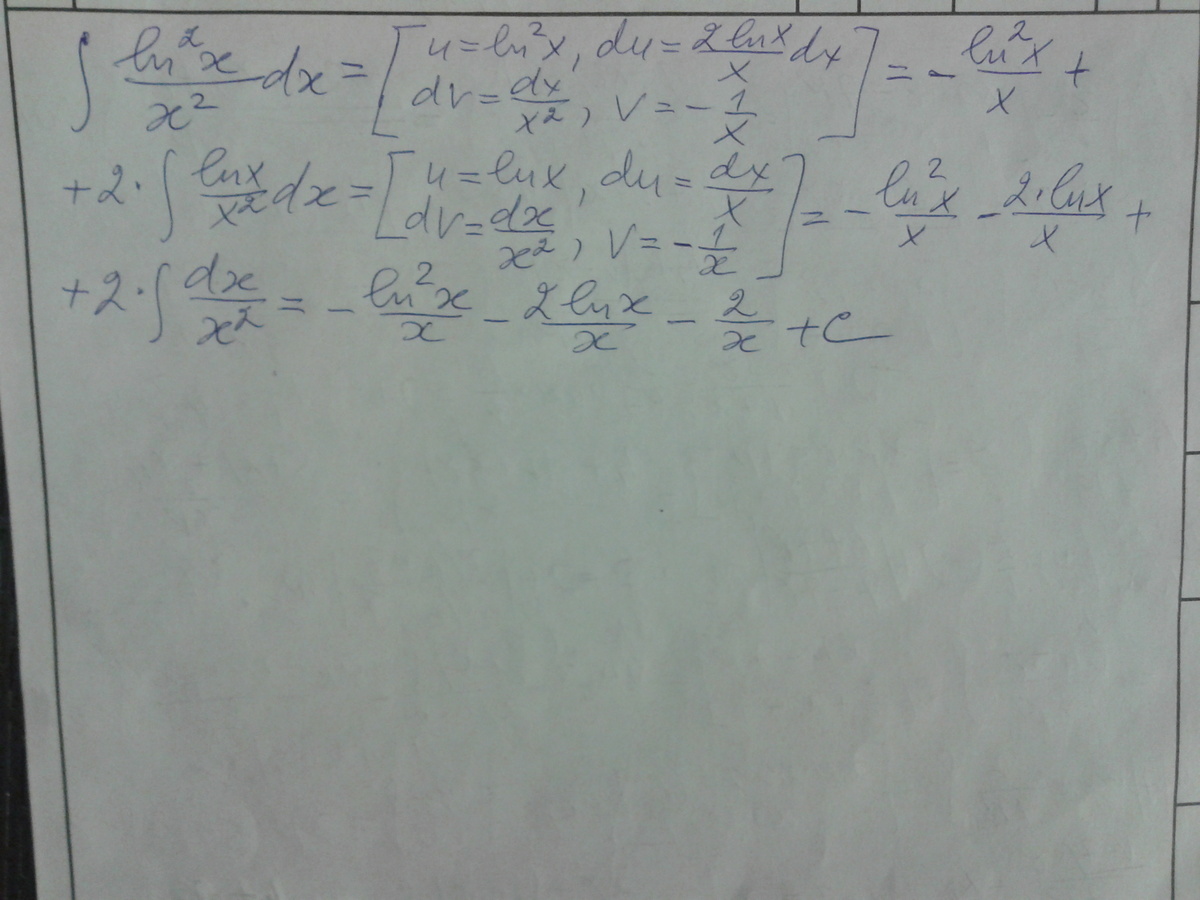 ∫ ln²x/x² dx = [u = ln²x, du = 2lnx/x dx; dv = dx/x², v = -1/x] = - ln²x/x +
+2·∫ lnx/x² dx = [u = lnx, du = dx/x; dv = dx/x², v = -1/x] = - ln²x/x - 2·lnx/x +
+2·∫ dx/x² = - ln²x/x - 2lnx/x - 2/x + c